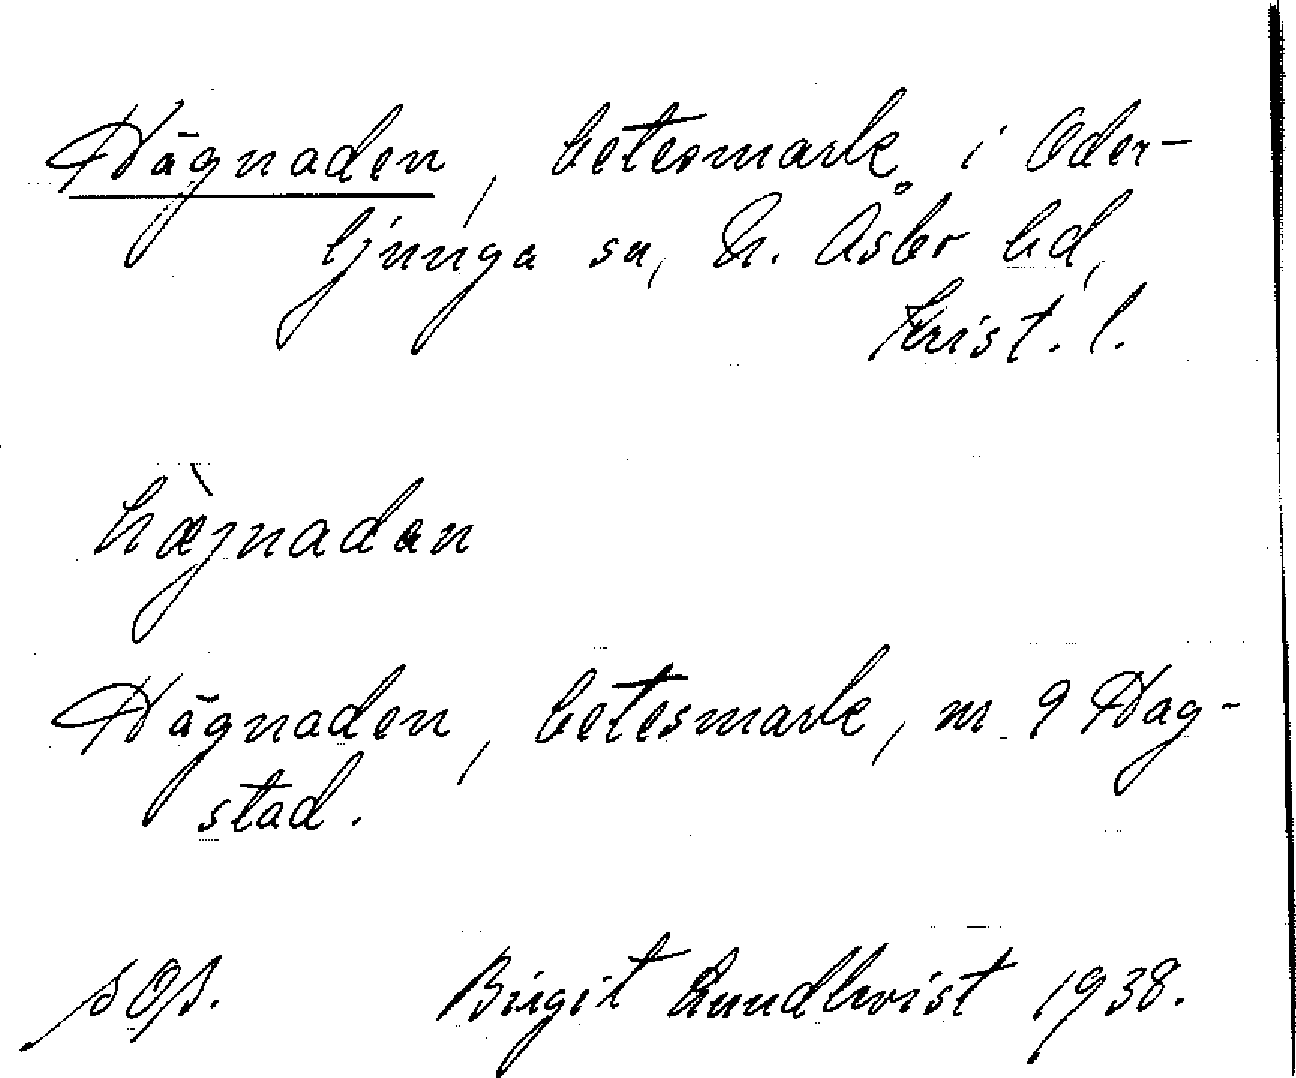 Hägnaden, betesmark i Oder-
ljunga sn, N. Åsbo hd,
Krist. l.
hæ̀jnadan
Hägnaden, betesmark, nr 9 Hag-
stad.
Birgit Lundkvist 1938.